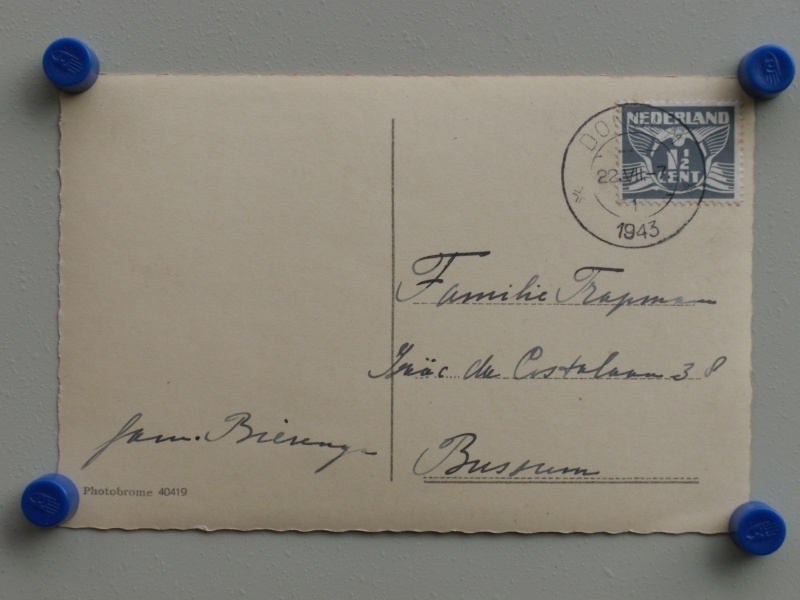 NEDERLAND
1½
CENT
22.VII.-7
1
1943
Familie Trapman
Isaäc da Costalaan 38
Bussum
fam. Bierenga
Photobrome 40419